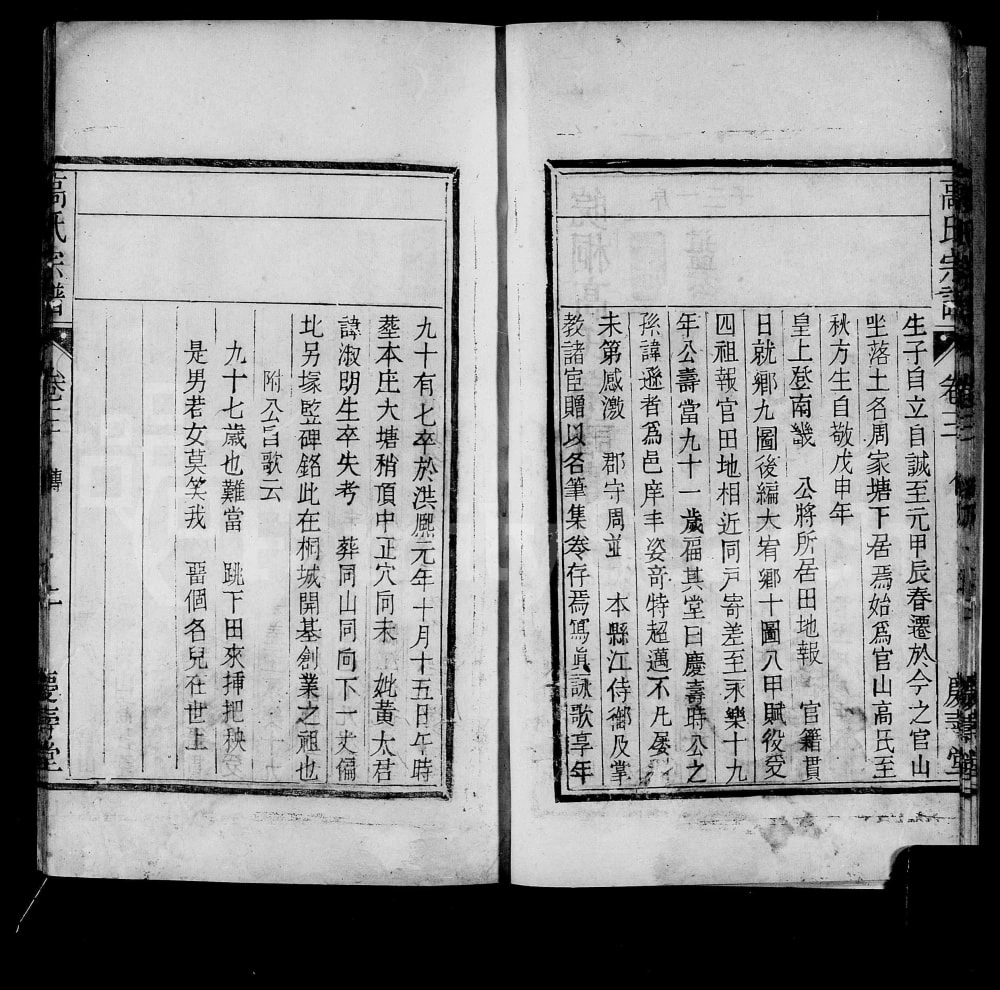 高氏宗譜 卷三 慶壽堂
生子自立自誠至元甲辰春遷於今之官山
坐落土名周家塘下居焉始爲官山高氏至
秋方生自敬戊申年
皇上登南畿 公將所居田地報 官籍貫
日就鄉九圖後編大宥鄉十圖八甲賦役受
四祖報官田地相近同戸寄差至永樂十九
年公壽當九十一歲福其堂曰慶壽時公之
孫諱遜者爲邑庠丰姿竒特超邁不凡屡
未第感激 郡守周並 本縣江侍御及掌
教諸宦贈以名筆集卷存焉寫眞詠歌享年
九十有七卒於洪熈元年十月十五日午時
塟本庄大塘稍頂中正穴向未妣黃太君
諱淑明生卒失考 葬同山同向下一丈偏
北另塚竪碑銘此在桐城開基創業之祖也
附公旨歌云
九十七歲也難當 跳下田來挿把秧
是男若女莫笑我 畱個名兒在世上
高氏宗譜 卷三 傳 二 慶壽堂